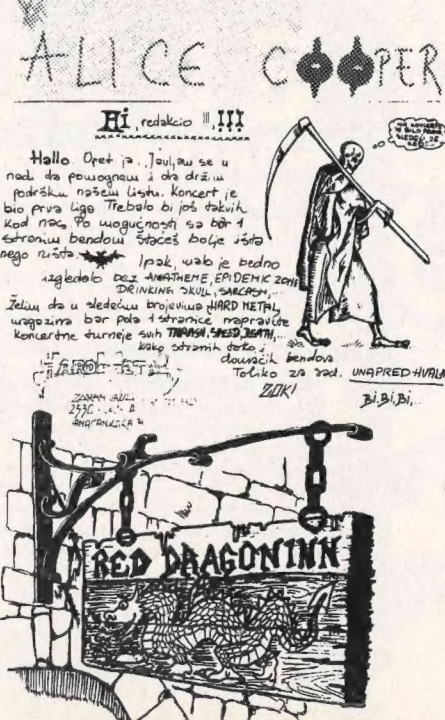 ALICE COOPER
Hi, redakcio !!!
Hallo. Opet ja. Javljam se u
nadi da pomognem i da držim
podršku našem listu. Koncert je
bio prva liga. Trebalo bi još takvih
kod nas. Po mogućnosti sa bar 1
stranim bendom. Staćeš bolje išta
nego ništa.
Ipak, malo je bedno
izgledalo bez ANATHEME, EPIDEMIC ZONE
DRINKING SKULL, SARCASM,...
Želim da u sledećim brojevima HARD METAL
magazina bar pola 1 stranice napravite
koncertne turneje svih THRASH, SPEED, DEATH,...
kako stranih tako i
domaćih bendova
Toliko za sad. UNAPRED HVALA
ZOK! Bi, Bi, Bi,..
RED DRAGON INN